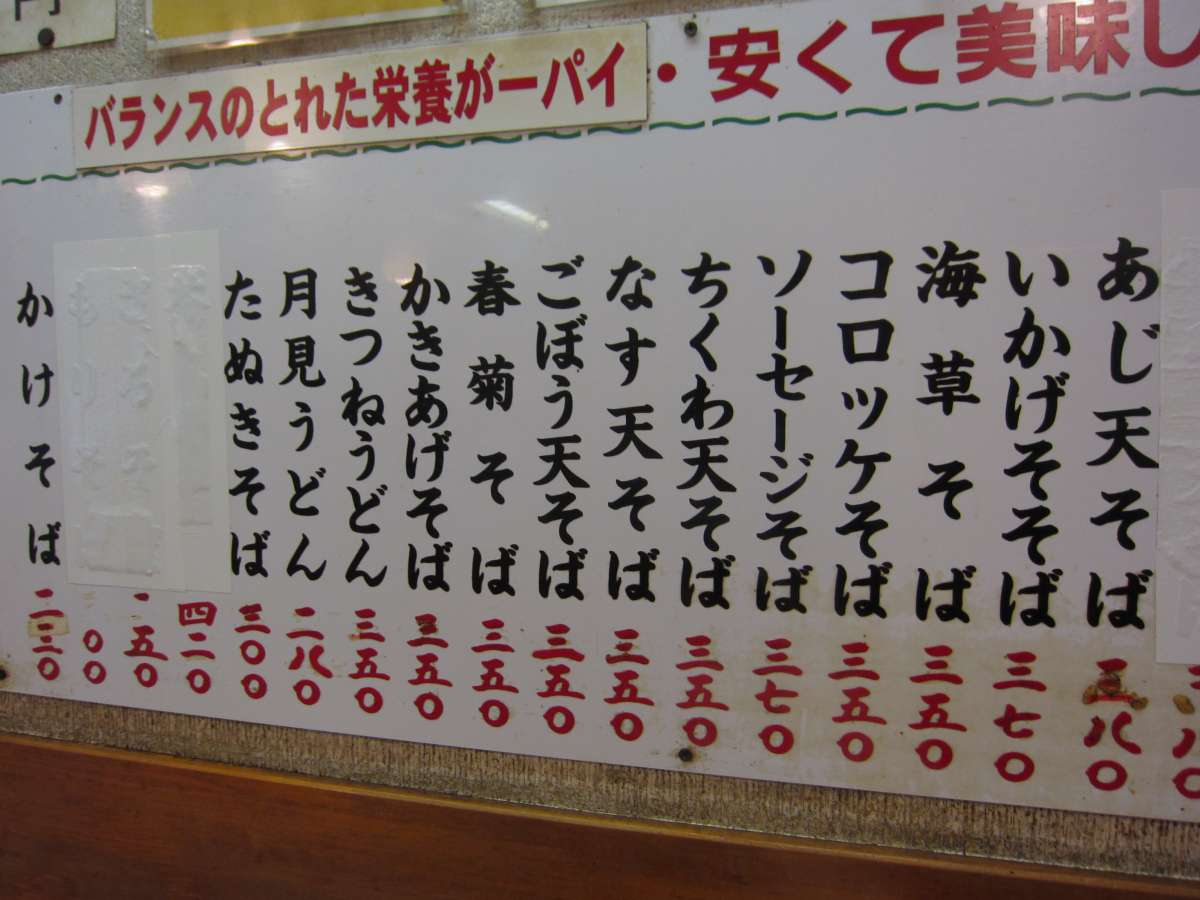 円
バランスのとれた栄養が一パイ・安くて美味し
あじ天そば 三八〇
いかげそそば 三七〇
海草そば 三五〇
コロッケそば 三五〇
ソーセージそば 三七〇
ちくわ天そば 三五〇
なす天そば 三五〇
ごぼう天そば 三五〇
春菊そば 三五〇
かきあげそば 三五〇
きつねうどん 三五〇
月見うどん 二八〇
たぬきそば 三〇〇
四二〇
五〇
〇〇
かけそば 二三〇